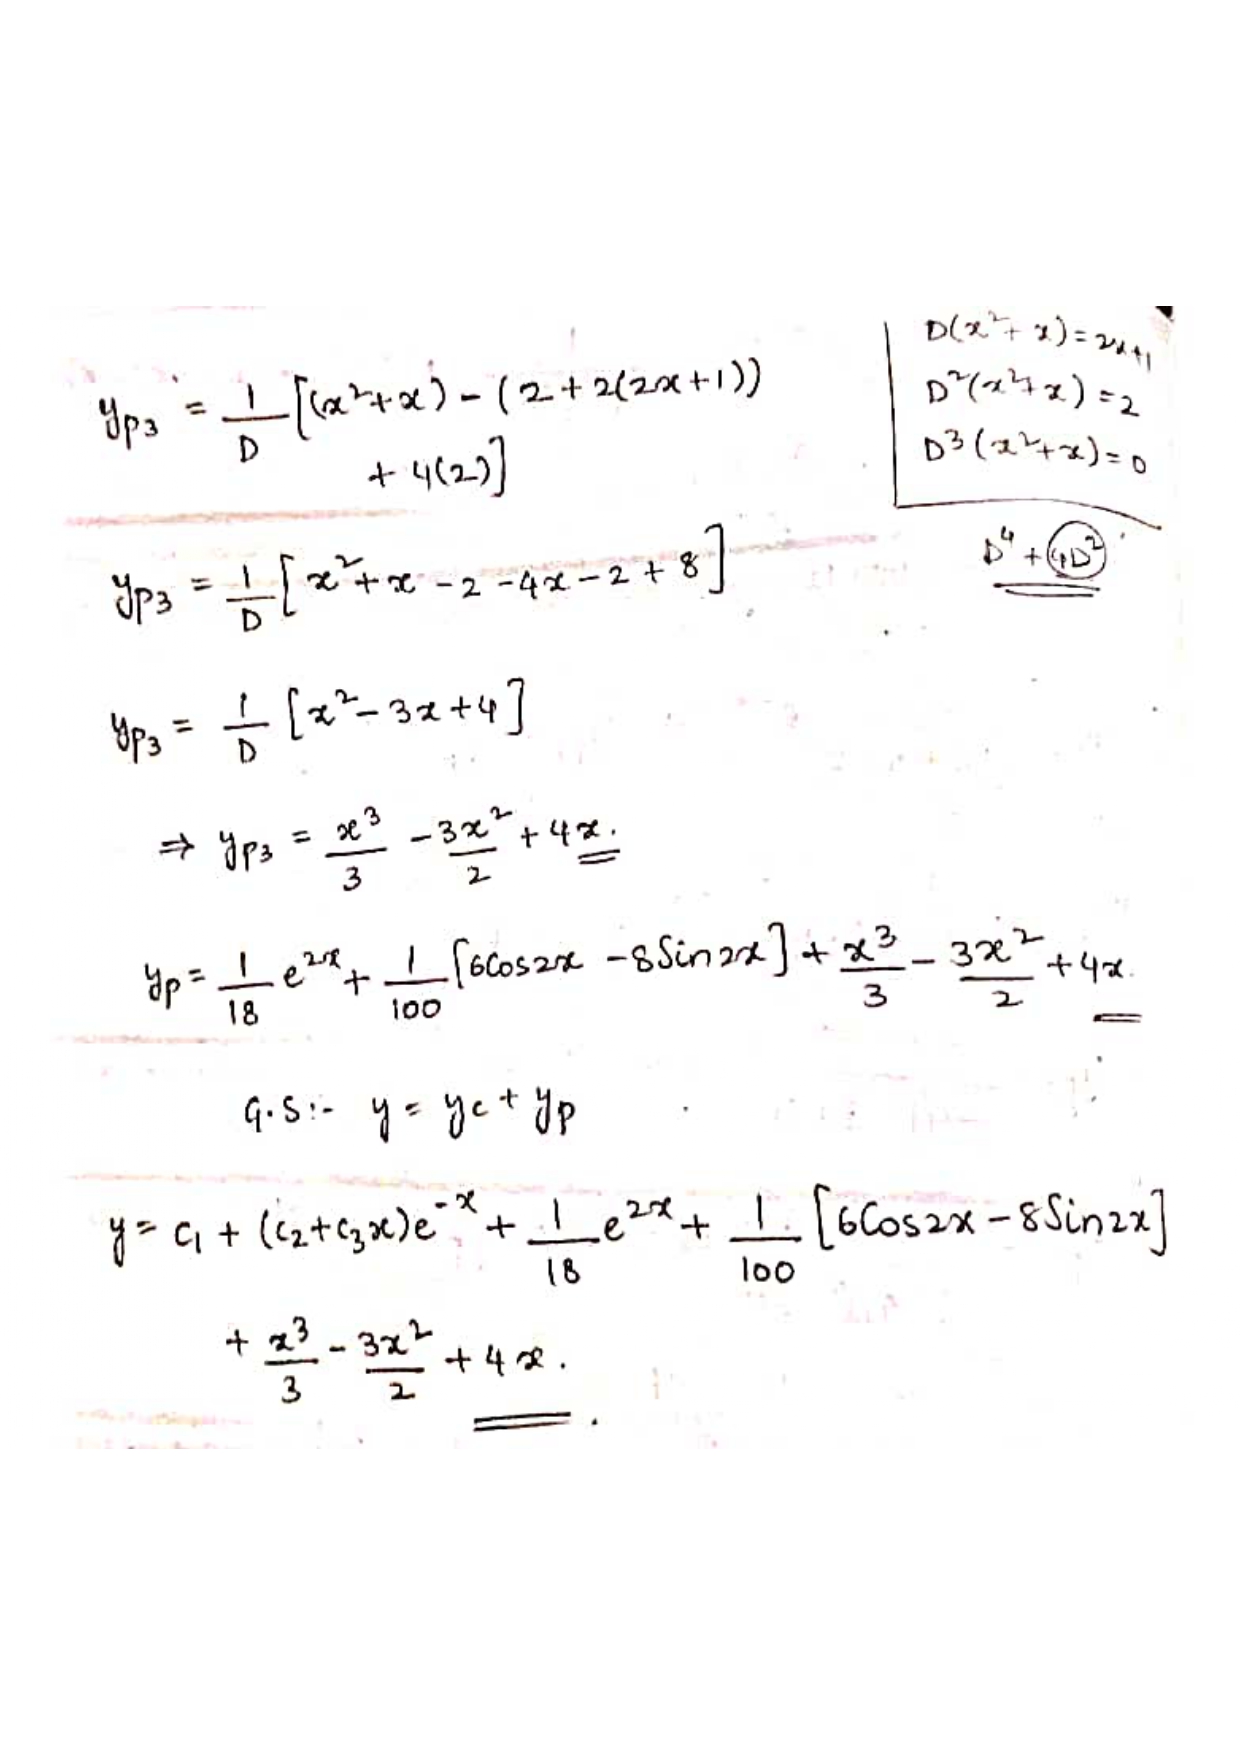 y_{p3} = 1/D [(x²+x) - (2 + 2(2x+1))
+ 4(2)]
D(x²+x) = 2x+1
D²(x²+x) = 2
D³(x²+x) = 0
D⁴ + 4D²
y_{p3} = 1/D [x²+x - 2 - 4x - 2 + 8]
y_{p3} = 1/D [x² - 3x + 4]
⇒ y_{p3} = x³/3 - 3x²/2 + 4x.
y_p = 1/18 e^{2x} + 1/100 [6Cos2x - 8Sin2x] + x³/3 - 3x²/2 + 4x.
G.S:- y = y_c + y_p
y = c₁ + (c₂+c₃x)e^{-x} + 1/18 e^{2x} + 1/100 [6Cos2x - 8Sin2x]
+ x³/3 - 3x²/2 + 4x.